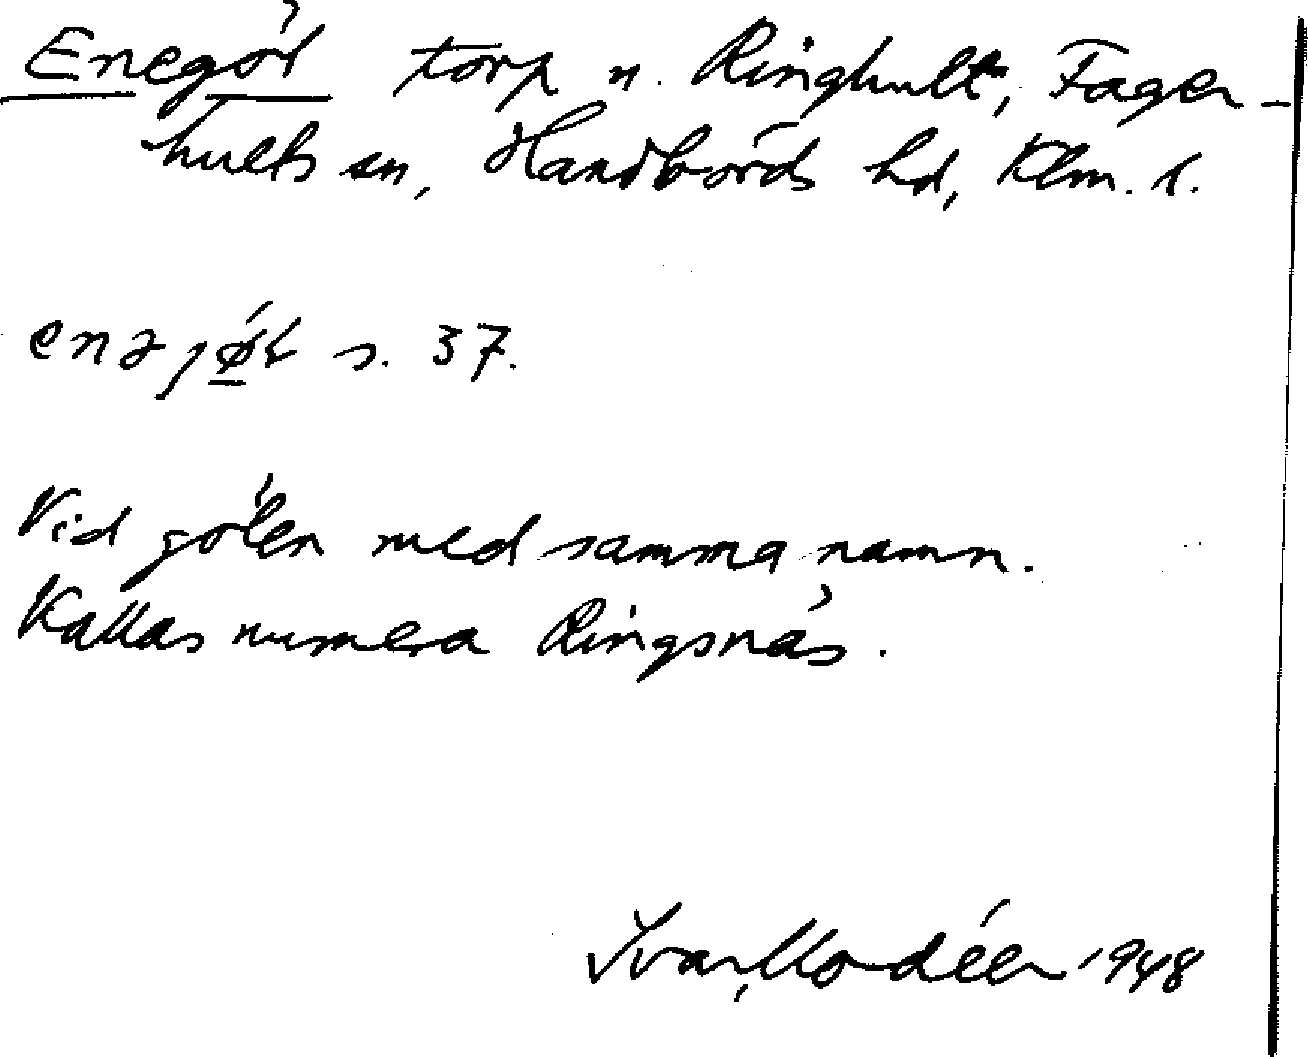 Enegöl torp u. Ringhult, Fager-
hults sn, Handbörds hd, Klm. l.
s. 37.
Vid gölen med samma namn.
Kallas numera Ringsnäs.
Ivar Modéer 1948